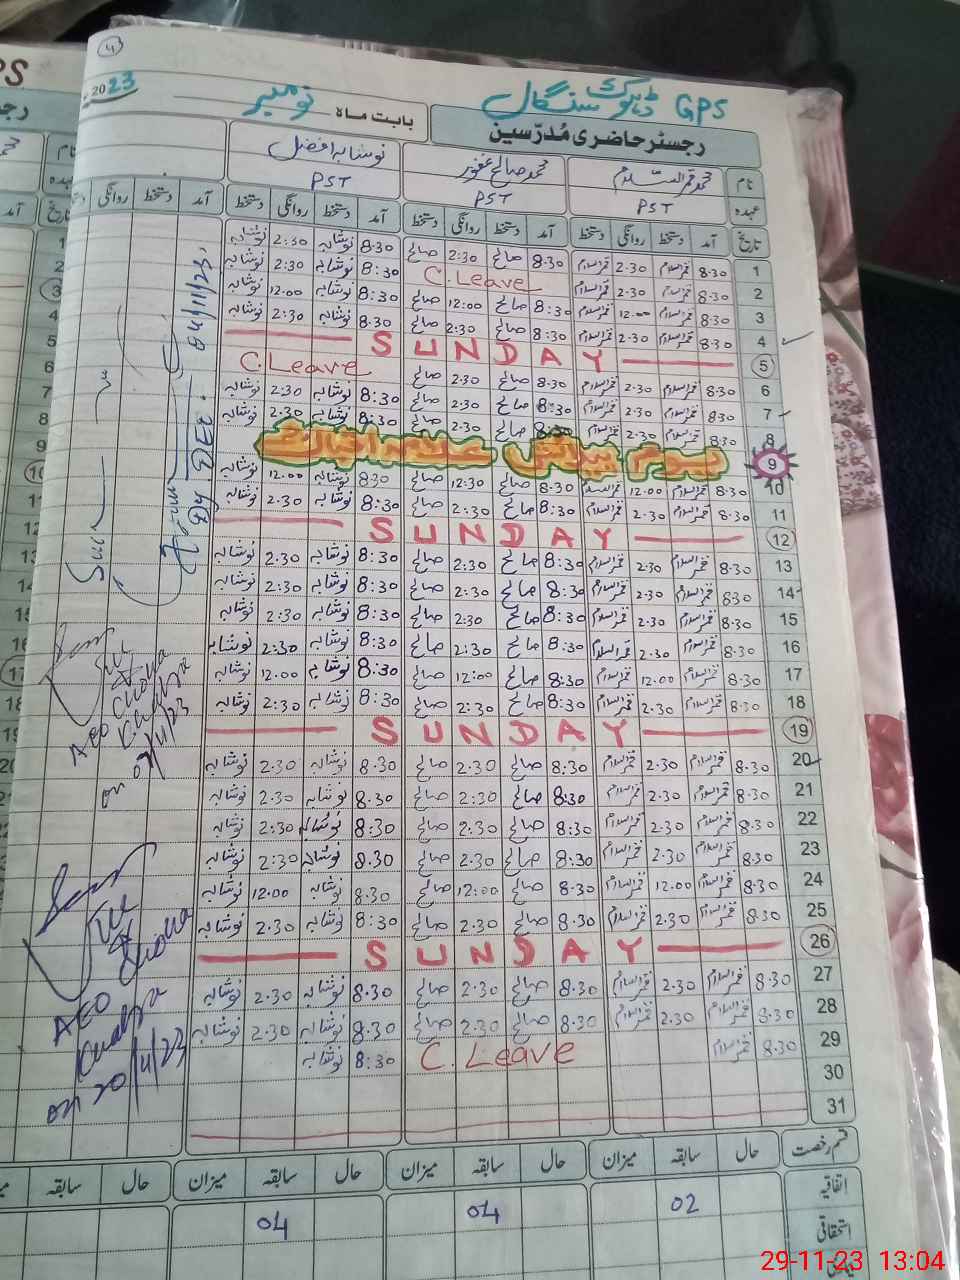 GPS ڈہوک سنگال
رجسٹر حاضری مُدرّسین
بابت ماہ نومبر 2023
نام محمد قمر السلام محمد صالح غفور نوشابہ افضل
عہدہ PST PST PST
تاریخ آمد دستخط روانگی دستخط آمد دستخط روانگی دستخط آمد دستخط روانگی دستخط آمد دستخط روانگی دستخط
1 8.30 قمر السلام 2.30 قمر السلام 8.30 صالح 2:30 صالح 8:30 نوشابہ 2:30 نوشابہ
2 8.30 قمر السلام 2.30 قمر السلام C. Leave 8:30 نوشابہ 2:30 نوشابہ
3 8.30 قمر السلام 12.00 قمر السلام 8:30 صالح 12:00 صالح 8:30 نوشابہ 12.00 نوشابہ
4 8.30 قمر السلام 2.30 قمر السلام 8:30 صالح 2:30 صالح 8.30 نوشابہ 2:30 نوشابہ
5 SUNDAY
6 8.30 قمر السلام 2.30 قمر السلام 8.30 صالح 2.30 صالح C. Leave
7 8.30 قمر السلام 2.30 قمر السلام 8:30 صالح 2:30 صالح 8:30 نوشابہ 2:30 نوشابہ
8 8.30 قمر السلام 2.30 قمر السلام 8:30 صالح 2.30 صالح 8:30 نوشابہ 2.30 نوشابہ
9 یوم پیدائش علامہ اقبال
10 8.30 قمر السلام 12.00 قمر السلام 8.30 صالح 12:30 صالح 8:30 نوشابہ 12.00 نوشابہ
11 8.30 قمر السلام 2.30 قمر السلام 8:30 صالح 2:30 صالح 8:30 نوشابہ 2.30 نوشابہ
12 SUNDAY
13 8.30 قمر السلام 2.30 قمر السلام 8:30 صالح 2:30 صالح 8:30 نوشابہ 2:30 نوشابہ
14 8.30 قمر السلام 2.30 قمر السلام 8:30 صالح 2:30 صالح 8:30 نوشابہ 2:30 نوشابہ
15 8.30 قمر السلام 2.30 قمر السلام 8:30 صالح 2:30 صالح 8:30 نوشابہ 2:30 نوشابہ
16 8.30 قمر السلام 2.30 قمر السلام 8:30 صالح 2:30 صالح 8:30 نوشابہ 2:30 نوشابہ
17 8.30 قمر السلام 12.00 قمر السلام 8:30 صالح 12:00 صالح 8:30 نوشابہ 12.00 نوشابہ
18 8.30 قمر السلام 2.30 قمر السلام 8:30 صالح 2:30 صالح 8:30 نوشابہ 2:30 نوشابہ
19 SUNDAY
20 8.30 قمر السلام 2.30 قمر السلام 8:30 صالح 2.30 صالح 8.30 نوشابہ 2.30 نوشابہ
21 8.30 قمر السلام 2.30 قمر السلام 8:30 صالح 2:30 صالح 8.30 نوشابہ 2:30 نوشابہ
22 8.30 قمر السلام 2.30 قمر السلام 8:30 صالح 2:30 صالح 8:30 نوشابہ 2:30 نوشابہ
23 8.30 قمر السلام 2.30 قمر السلام 8:30 صالح 2.30 صالح 8.30 نوشابہ 2:30 نوشابہ
24 8.30 قمر السلام 12.00 قمر السلام 8.30 صالح 12:00 صالح 8.30 نوشابہ 12.00 نوشابہ
25 8.30 قمر السلام 2.30 قمر السلام 8.30 صالح 2.30 صالح 8:30 نوشابہ 2.30 نوشابہ
26 SUNDAY
27 8.30 قمر السلام 2.30 قمر السلام 8.30 صالح 2.30 صالح 8.30 نوشابہ 2.30 نوشابہ
28 8.30 قمر السلام 2.30 قمر السلام 8.30 صالح 2.30 صالح 8.30 نوشابہ 2.30 نوشابہ
29 8.30 قمر السلام C. Leave 8:30 نوشابہ
30
31
قسم رخصت حال سابقہ میزان حال سابقہ میزان حال سابقہ میزان حال سابقہ
اتفاقیہ 02 04 04
استحقاقی
Dy. DEO
AEO Chowa
on 07/11/23
AEO Chowa
on 20/11/23
29-11-23 13:04